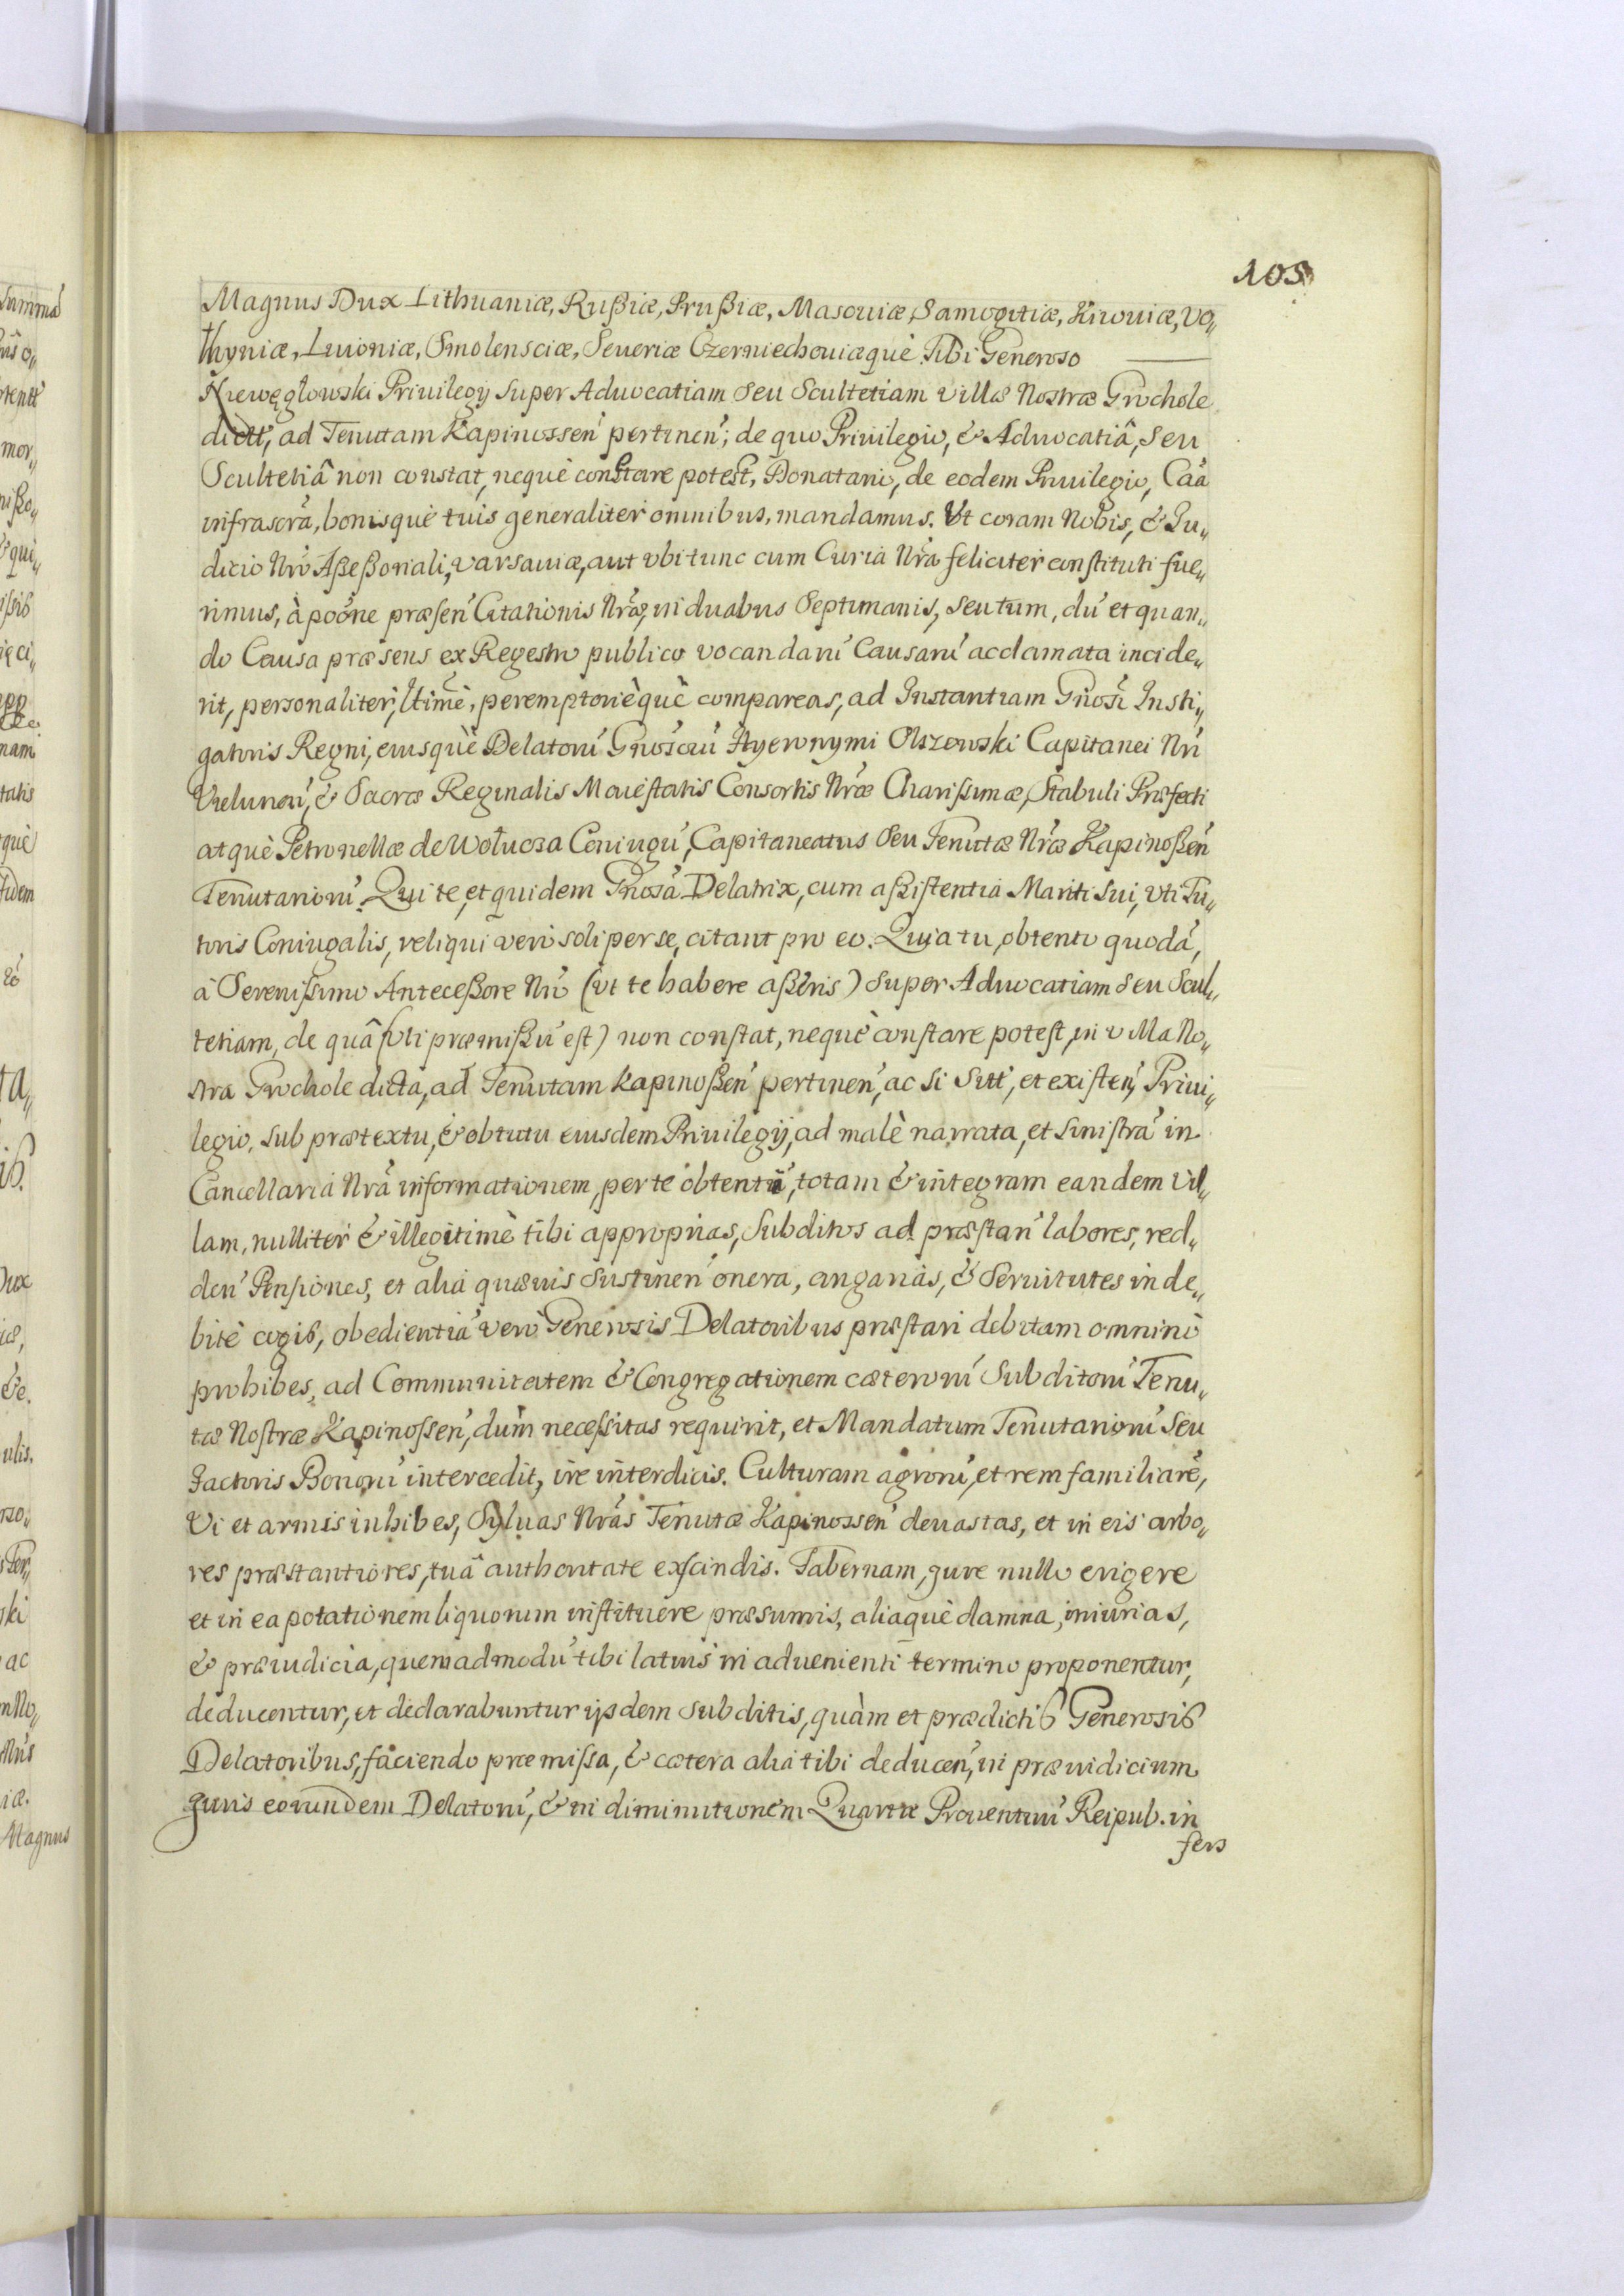 105
Magnus Dux Lithuaniæ, Rußiæ, Prußiæ, Masouiæ, Samogitiæ, Kiiouiæ, Vo„
lhyniæ, Liuoniæ, Smolensciæ, Seueriæ Czerniechouiæquè. Tibi Generoso
Niewęglowski Priuilegij super Aduocatiam seu Scultetiam villæ Nostræ Grochole
dictt, ad Tenutam Kapinossen̄ pertinen̄; de quo Priuilegio, & Aduocatiâ, seu
Scultetiâ non constat, nequè constare potest, Donatario, de eodem Priuilegio, Caã
infrascrã, bonisquè tuis generaliter omnibus, mandamus. Vt coram Nobis, & Iu„
dicio Nrõ Aßeßoriali, Varsauiæ, aut vbi tunc cum Curia Nrã feliciter constituti fue„
rimus, à põõne præsen̄ Citationis Nræ, in duabus Septimanis, seu tum, dũ et quan„
do Causa præsens ex Regestro publico vocandarũ Causarũ acclamata incide„
rit, personaliter, ltimè, peremptoriequè compareas, ad Instantiam Gñosi Insti„
gatoris Regni, eiusquè Delatorũ Gñosorũ Hyeronymi Olszowski Capitanei Nri
Vielunen̄, & Sacræ Reginalis Maiestatis Consortis Nræ Charissimæ, Stabuli Præfecti
atquè Petronellæ de Wołucza Coniugũ, Capitaneatus seu Tenutæ Nræ Kapinoßen̄
Tenutariorũ. Qui te, et quidem Gñosa Delatrix, cum aßistentia Mariti sui, vti Tu„
toris Coniugalis, reliqui verò soli per se, citant pro eo. Quia tu, obtento quodã,
à Serenissimo Anteceßore Nrõ (vt te habere aßeris) super Aduocatiam seu Scul„
tetiam, de quâ (vti præmißũ est) non constat, nequè constare potest, in villa No„
stra Grochole dicta, ad Tenutam Kapinoßen̄ pertinen̄, ac si sitt, et existen̄, Priui„
legio, sub prætextu, & obtutu eiusdem Priuilegij, ad malè narrata, et sinistrã in
Cancellaria Nrã informationem, per te obtentũ, totam & integram eandem Vil„
lam, nulliter & illegitimè tibi approprias, Subditos ad præstan̄ labores, red„
den̄ Pensiones, et alia quæuis sustinen̄ onera, angarias, & Seruitutes inde„
bitè cogis, obedientiã verò Generosis Delatoribus præstari debitam omninò
prohibes, ad Communitatem & Congregationem cæterorũ Subditorũ Tenu„
tæ Nostræ Kapinossen̄, dum necessitas requirit, et Mandatum Tenutariorũ seu
Factoris Bonorũ intercedit, ire interdicis. Culturam agrorũ, et rem familiarẽ,
Vi et armis inhibes, Syluas Nrãs Tenutæ Kapinossen̄ deuastas, et in eis arbo„
res præstantiores, tuâ authoritate exscindis. Tabernam, iure nullo erigere
et in ea potationem liquorum instituere præsumis, aliaquè damna, iniurias,
& præiudicia, quemadmodũ tibi latius in aduenienti termino proponentur,
deducentur, et declarabuntur ijsdem subditis, quàm et prædictis Generosis
Delatoribus, faciendo præmissa, & cætera alia tibi deducen̄, in præiudicium
Iuris eorundem Delatorũ, & in diminutionem Quartæ Prouentuũ Reipub. in
fers